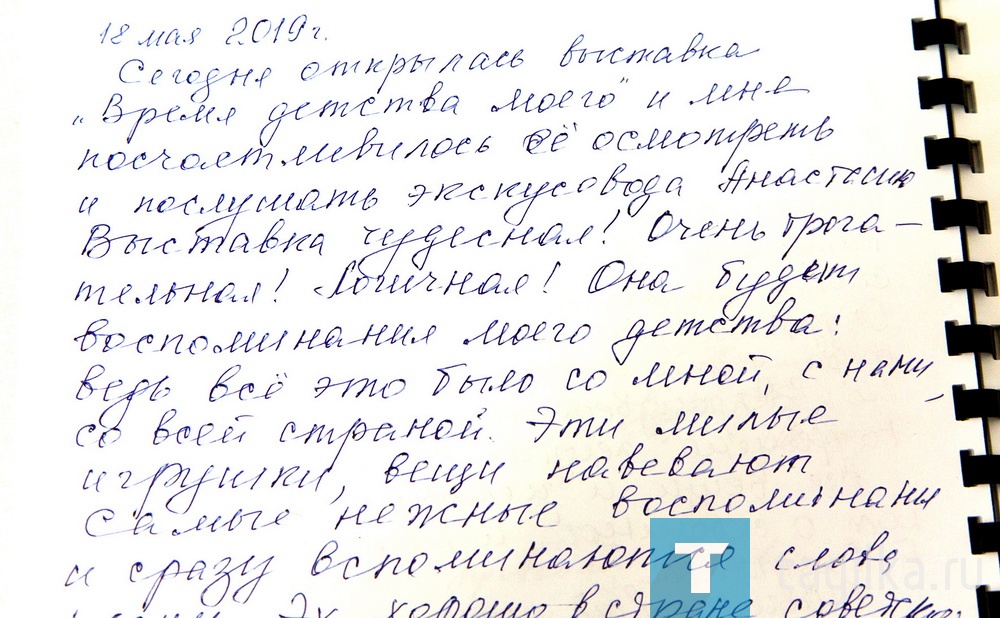 18 мая 2019г.
Сегодня открылась выставка
„Время детства моего" и мне
посчастливилось её осмотреть
и послушать экскусовода Анастасию
Выставка чудесная! Очень трога-
тельная! Логичная! Она будит
воспоминания моего детства:
ведь всё это было со мной, с нами,
со всей страной. Эти милые
игрушки, вещи навевают
самые нежные воспоминани
и сразу вспоминаются слова
Эх, хорошо в стране советской